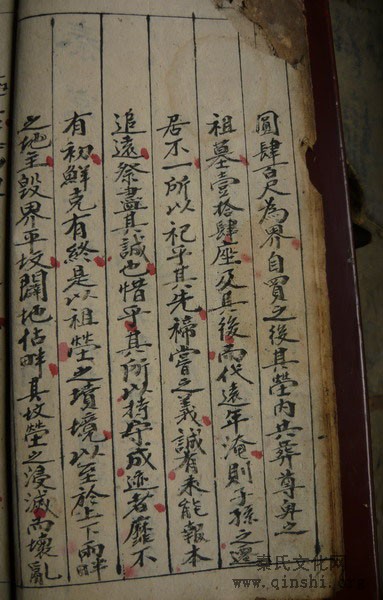 圓肆百尺為界自買之後其塋内共葬尊卑之
祖墓壹拾肆座及其後而代遠年淹則子孫之遷
居不一所以祀乎其先禘嘗之義誠有未能報本
追遠祭盡其誠也惜乎其所以持守成迹者靡不
有初鮮克有終是以祖塋之墳境以至於上下兩畔
之地至毀界平坟闢地佔畔其坟塋之浸滅而壞亂
秦氏文化网
www.qinshi.com